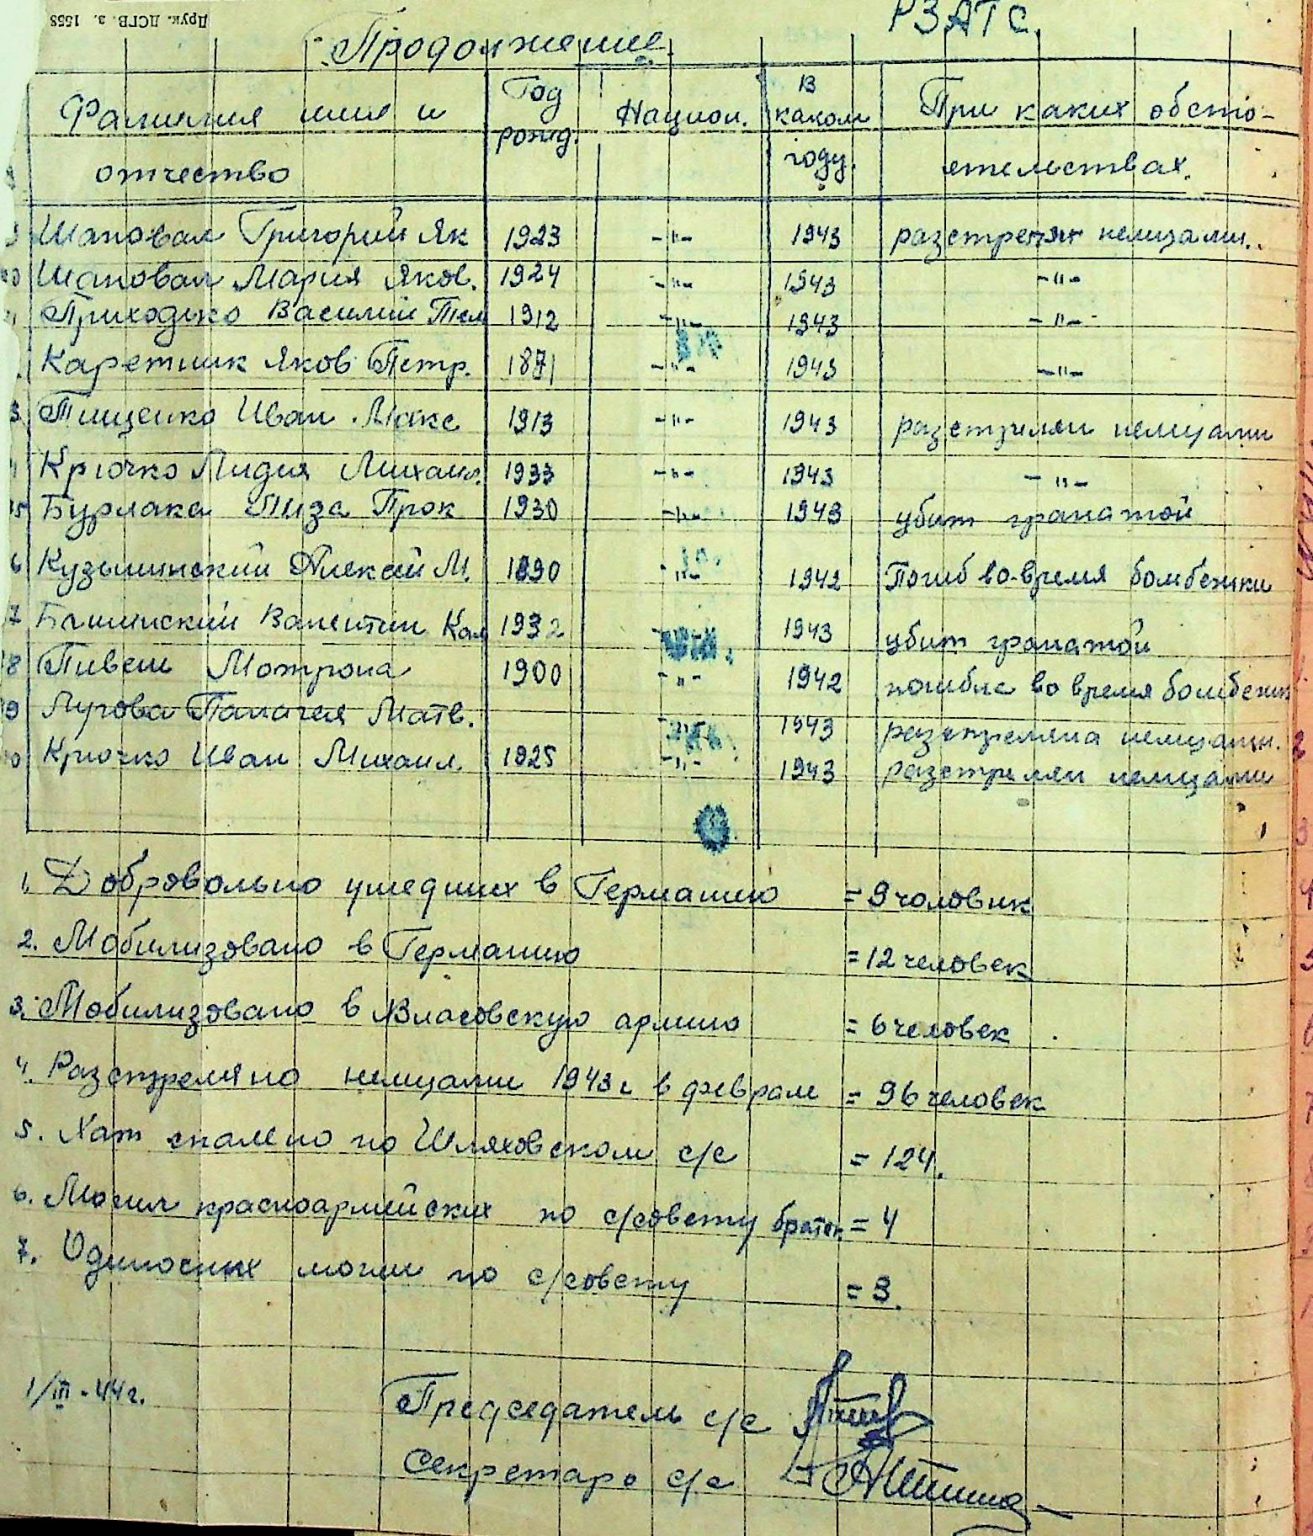 Друк. ДСГВ. з. 1558
РЗАТС.
Продолжение
Фамилия имя и отчество | Год рожд. | Национ. | В каком году. | При каких обсто-ятельствах.
Шаповал Григорий Як | 1923 | -"- | 1943 | разстрелян немцами.
Шаповал Мария Яков. | 1924 | -"- | 1943 | -"-
Приходько Василий | 1912 | -"- | 1943 | -"-
Каретник Яков Петр. | 1871 | -"- | 1943 | -"-
Тищенко Иван Макс | 1913 | -"- | 1943 | разстрилян немцами
Крючко Лидия Михаил. | 1933 | -"- | 1943 | -"-
Бурлака Лиза Прок | 1930 | -"- | 1943 | убит гранатой
6 Кузьминский Алексей М. | 1890 | -"- | 1942 | Погиб во-время бомбежки
7 Валентин | 1932 | 1943 | убит гранатой
8 Пивень Мотрона | 1900 | -"- | 1942 | погибла во время бомбежки
9 Лугова Палагея Матв. | 1943 | разстреляна немцами.
Крючко Иван Михаил. | 1925 | -"- | 1943 | разстрелян немцами
1. Добровольно ушедших в Германию = 9 чоловик
2. Мобилизовано в Германию = 12 человек
3. Мобилизовано в Власовскую армию = 6 человек
4. Разстреляно немцами 1943г в феврале = 96 человек
5. Хат спалено по Шляховском с/с = 124.
6. Могил красноармейских по с/совету братск = 4
7. Одиночних могил по с/совету = 3.
1/III-44г.
Председатель с/с
Секретарь с/с